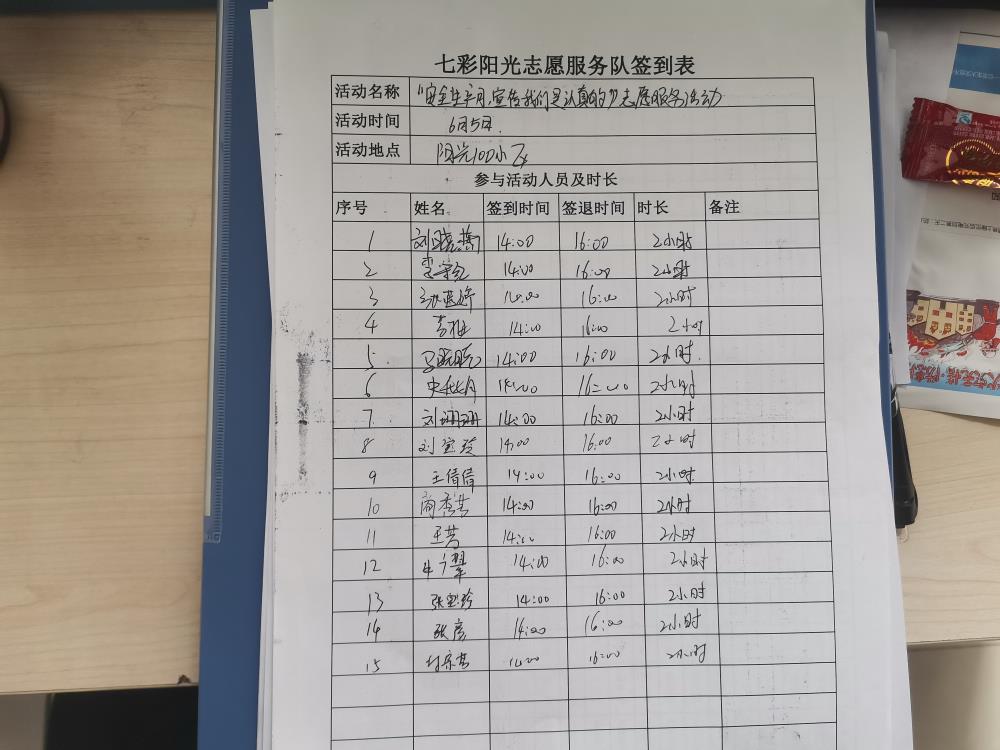 七彩阳光志愿服务队签到表
活动名称 "安全生产月,宣传我们是认真的"志愿服务活动
活动时间 6月5日.
活动地点 阳光100小区
参与活动人员及时长
序号 姓名 签到时间 签退时间 时长 备注
1 刘晓燕 14:00 16:00 2小时
2 李 14:00 16:00 2小时
3 14:00 16:00 2小时
4 14:00 16:00 2小时
5 马 14:00 16:00 2小时.
6 史秋月 14:00 16:00 2小时
7 刘珊珊 14:00 16:00 2小时
8 刘宝玲 14:00 16:00 2小时
9 王倩倩 14:00 16:00 2小时
10 秀芳 14:00 16:00 2小时
11 王芳 14:00 16:00 2小时
12 翠 14:00 16:00 2小时
13 张 14:00 16:00 2小时
14 张彦 14:00 16:00 2小时
15 付 14:00 16:00 2小时